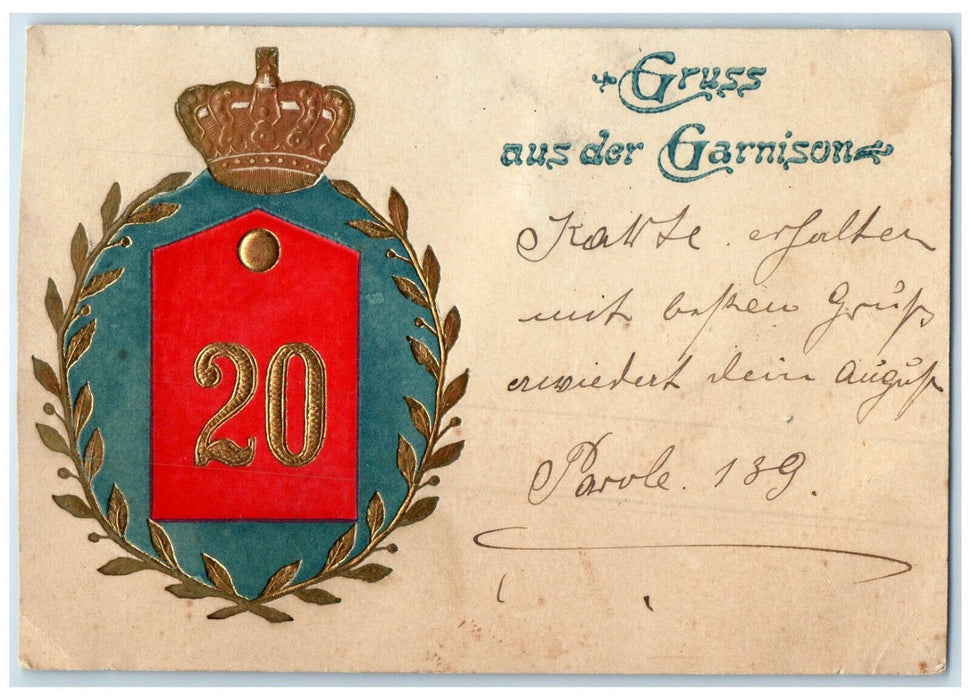 Gruss
aus der Garnison
20
Karte erhalten
mit besten Gruß
erwiedert dein August
Parole. 139.